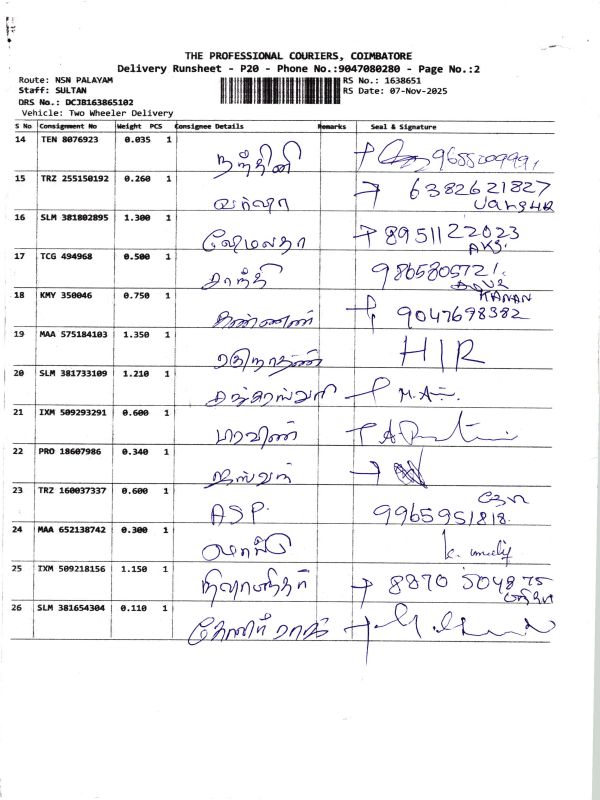 THE PROFESSIONAL COURIERS, COIMBATORE
Delivery Runsheet - P20 - Phone No.:9047080280 - Page No.:2
Route: NSN PALAYAM RS No.: 1638651
Staff: SULTAN RS Date: 07-Nov-2025
DRS No.: DCJB163865102
Vehicle: Two Wheeler Delivery
S No Consignment No Weight PCS Consignee Details Remarks Seal & Signature
14 TEN 8076923 0.035 1
நந்தினி
15 TRZ 255150192 0.260 1 6382621827
வர்ஷா
16 SLM 381802895 1.300 1 8951122023
ஹேமலதா
17 TCG 494968 0.500 1 9865805721.
சாந்தி
18 KMY 350046 0.750 1 KANAN
கண்ணன் 9047698382
19 MAA 575184103 1.350 1
ரகுநாதன் HIR
20 SLM 381733109 1.210 1
21 IXM 509293291 0.600 1
பரவீண்
22 PRO 18607986 0.340 1
23 TRZ 160037337 0.600 1
ASP. 9965951818.
24 MAA 652138742 0.300 1
25 IXM 509218156 1.150 1
8870 504875
26 SLM 381654304 0.110 1